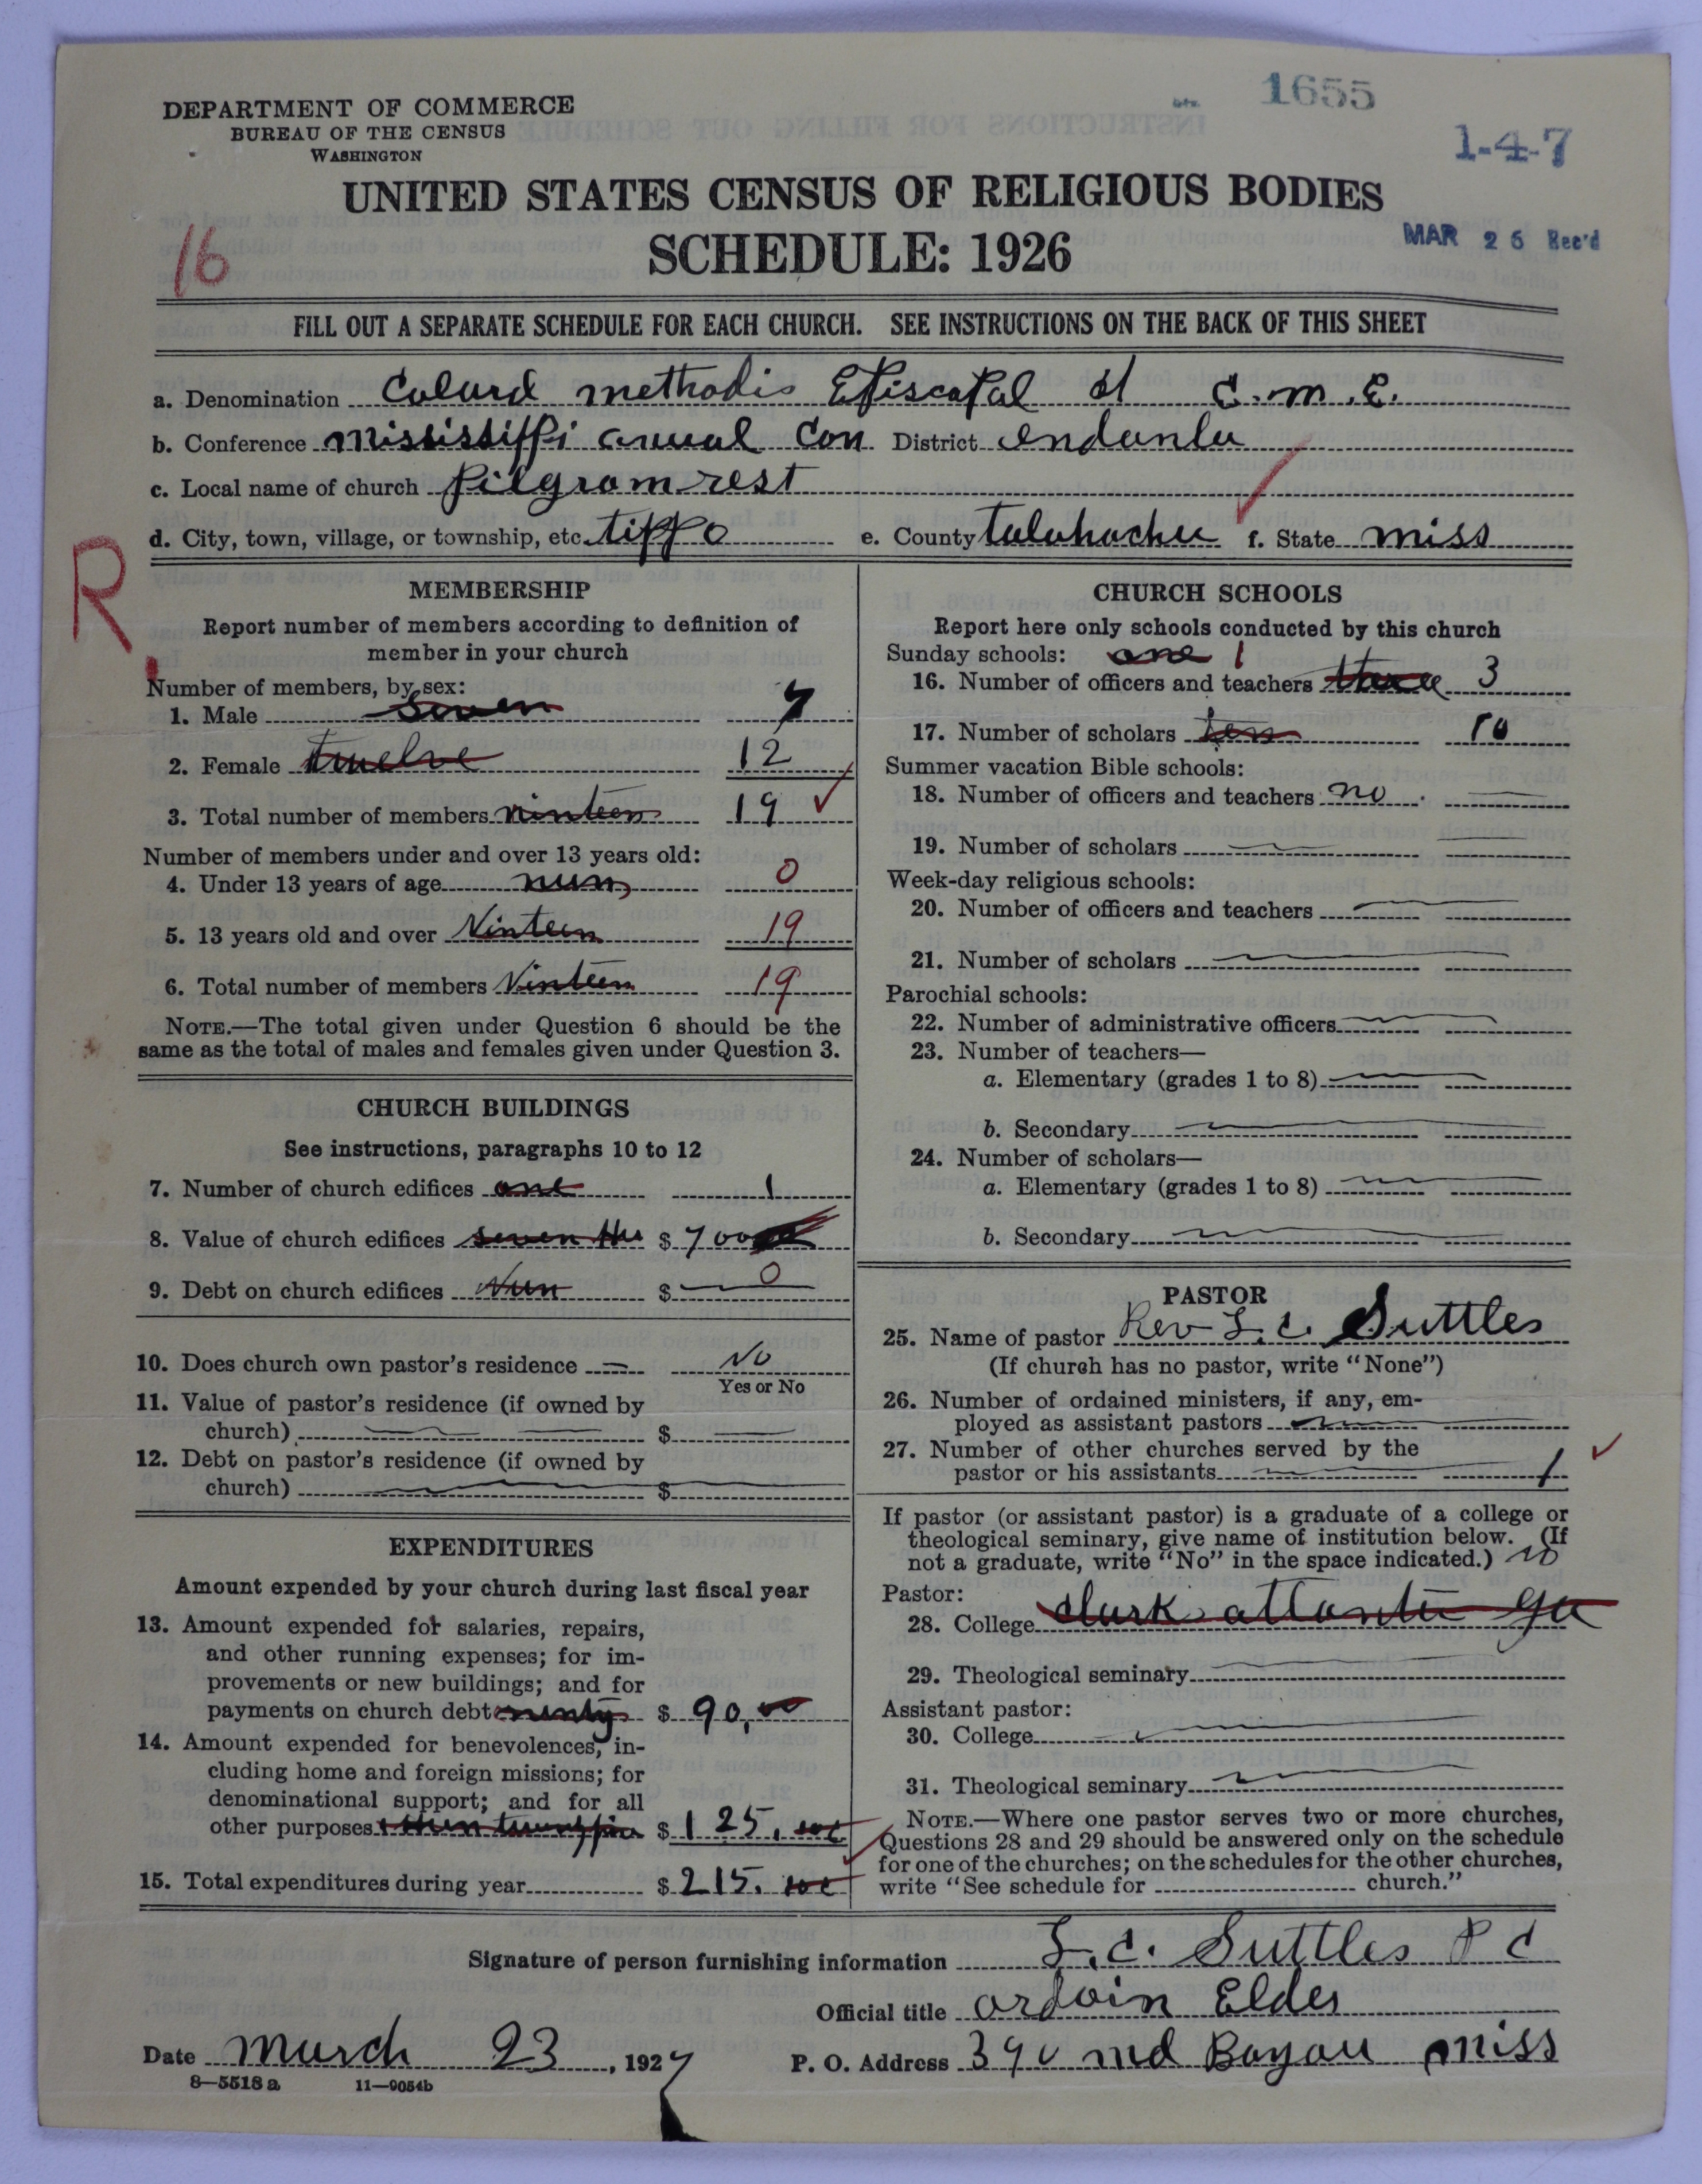 1655
DEPARTMENT OF COMMERCE
BUREAU OF THE CENSUS
WASHINGTON
1-4-7
UNITED STATES CENSUS OF RELIGIOUS BODIES
SCHEDULE: 1926
MAR 26 Rec'd
16
FILL OUT A SEPARATE SCHEDULE FOR EACH CHURCH. SEE INSTRUCTIONS ON THE BACK OF THIS SHEET
a. Denomination Colurd methodis Episcopal C.M.E.
b. Conference Mississippi anual Con District endanla
c. Local name of church Pilgram rest
d. City, town, village, or township, etc. tippo e. County talahachee f. State miss
R.
MEMBERSHIP
Report number of members according to definition of
member in your church
Number of members, by sex:
1. Male Seven 7
2. Female twelve 12
3. Total number of members ninteen 19
Number of members under and over 13 years old:
4. Under 13 years of age nun 0
5. 13 years old and over Ninteen 19
6. Total number of members Ninteen 19
NOTE.—The total given under Question 6 should be the
same as the total of males and females given under Question 3.
CHURCH BUILDINGS
See instructions, paragraphs 10 to 12
7. Number of church edifices one 1
8. Value of church edifices seven Hu $ 700
9. Debt on church edifices Nun $ 0
10. Does church own pastor's residence No
Yes or No
11. Value of pastor's residence (if owned by
church) $
12. Debt on pastor's residence (if owned by
church) $
EXPENDITURES
Amount expended by your church during last fiscal year
13. Amount expended for salaries, repairs,
and other running expenses; for im-
provements or new buildings; and for
payments on church debt $ 90,00
14. Amount expended for benevolences, in-
cluding home and foreign missions; for
denominational support; and for all
other purposes $ 125.
15. Total expenditures during year $ 215.
CHURCH SCHOOLS
Report here only schools conducted by this church
Sunday schools: one 1
16. Number of officers and teachers three 3
17. Number of scholars ten 10
Summer vacation Bible schools:
18. Number of officers and teachers no
19. Number of scholars
Week-day religious schools:
20. Number of officers and teachers
21. Number of scholars
Parochial schools:
22. Number of administrative officers
23. Number of teachers—
a. Elementary (grades 1 to 8)
b. Secondary
24. Number of scholars—
a. Elementary (grades 1 to 8)
b. Secondary
PASTOR
25. Name of pastor Rev L. C. Suttles
(If church has no pastor, write "None")
26. Number of ordained ministers, if any, em-
ployed as assistant pastors
27. Number of other churches served by the
pastor or his assistants 1
If pastor (or assistant pastor) is a graduate of a college or
theological seminary, give name of institution below. (If
not a graduate, write "No" in the space indicated.) no
Pastor:
28. College Clark atlanta ga
29. Theological seminary
Assistant pastor:
30. College
31. Theological seminary
NOTE.—Where one pastor serves two or more churches,
Questions 28 and 29 should be answered only on the schedule
for one of the churches; on the schedules for the other churches,
write "See schedule for church."
Signature of person furnishing information L. C. Suttles P C
Official title ordain Elder
Date March 23, 1927 P. O. Address md Bayou miss
8—5518 a 11—9054b